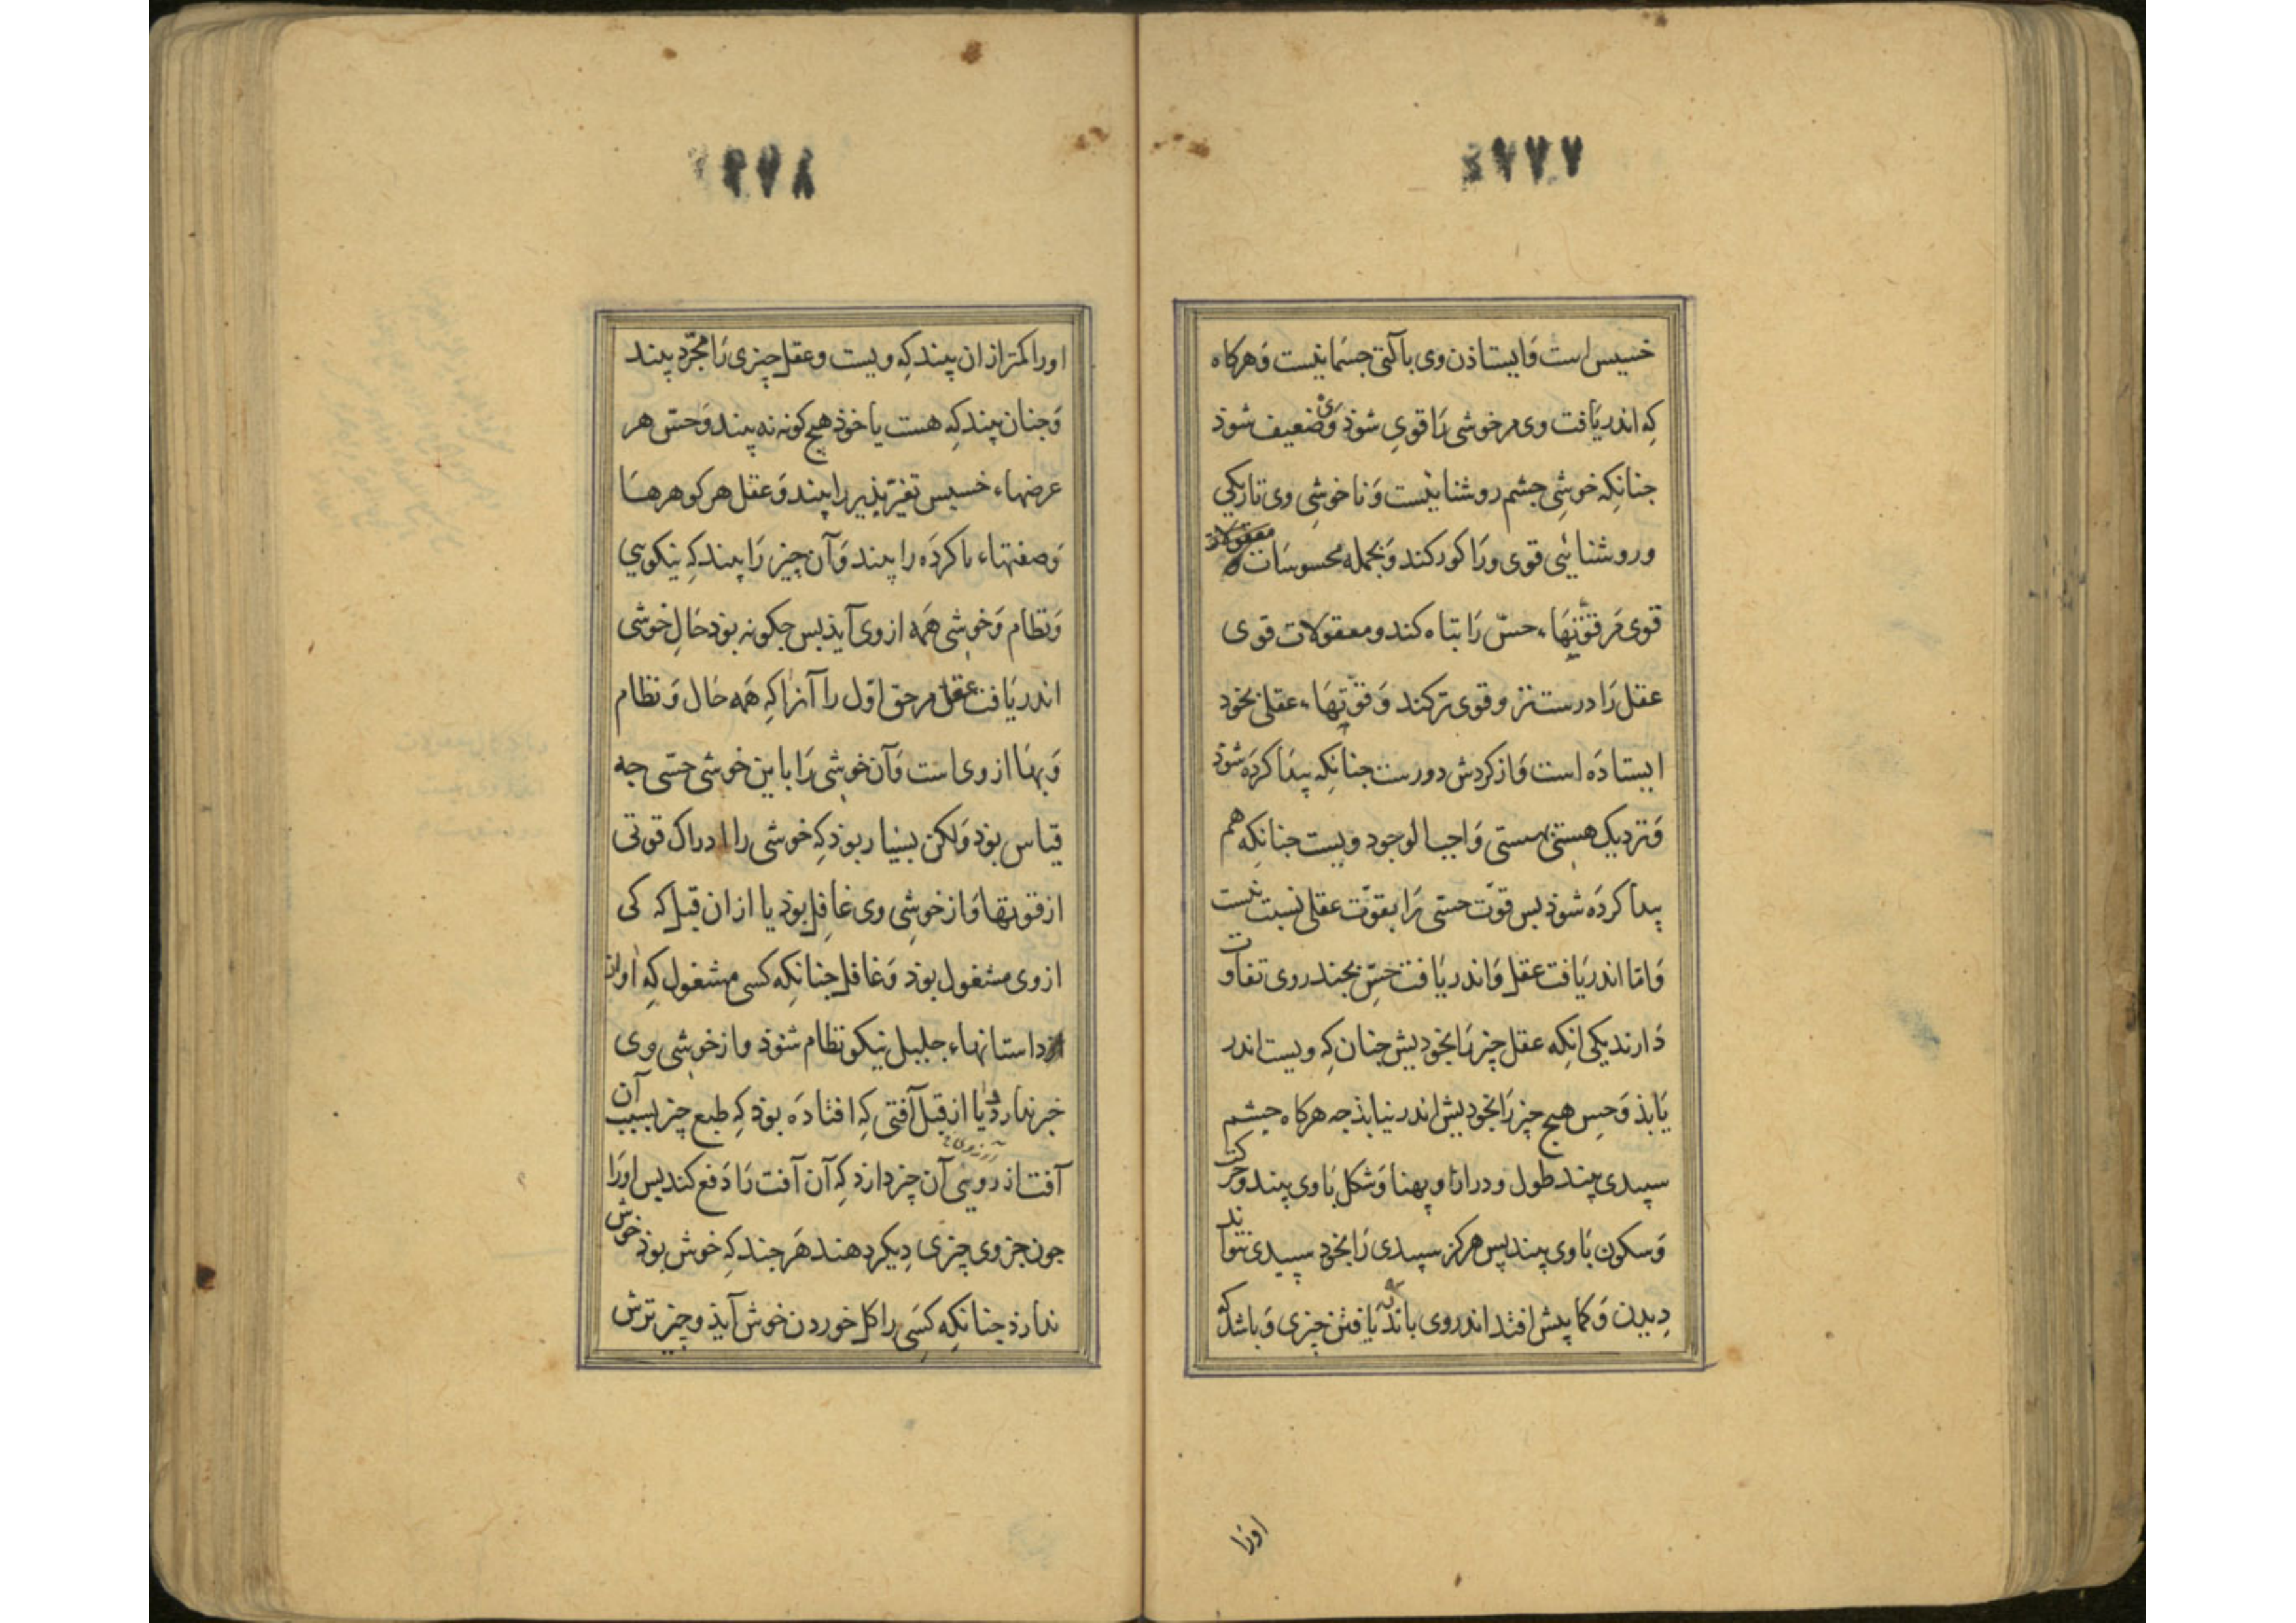 ۷۷۷
خسیس است وَایستاذن وی بآلتی جسمانیست وَهرکاه
کِه اندریَافت وی مرخوشی رَا قوی شوذ وَی ضعیف شوذ
جنانکِه خوشیِ جشم روشناییست وَناخوشیِ وی تاریکی
وروشنائی قوی ورَا کور کند وَبجمله محسوسَات
قوی مَرقوّتهَاء حسّ رَا تباه کند ومعقولات قوی
عقل رَا درست تر وقوی تر کند وَقوّتهَاء عقلی بخوذ
ایستاذَه است وَاز کردش دورست جنانکِه پیدَا کردَه شوذ
وَنزدیک هستی بهستی وَاجب الوجود ویست جنانکِه هم
پیدا کردَه شوذ بس قوّت حسّی رَا بقوّت عقلی نسبت نیست
وَامّا اندریَافت عقل وَاندریَافت حسّ بجند روی تفاوت
دَارند یکی انکِه عقل چیز رَا بخوذیش چنان کِه ویست اندر
یَابذ وَحِس هیچ چیز رَا بخوذیش اندر نیابذ جه هرکاه جشم
سپیدی بیند طول ودرازا وپهنا وَشکل بَا وی بیند وحرکت
وَسکون بَا وی بیند پس هرکز سپیدی رَا بخوذ سپیدی نتواند
دِیدن وَکما بیش افتد اندر وی باندریَافتن چیزی وَباشد که
اورا
۷۷۸
اورا کمتر از ان بیند کِه ویست وعقل چیزی رَا مجرّد بیند
وَجنان بیند کِه هست یا خوذ هیچ کونه نه بیند وَحسّ هر
عرضهاء خسیس تغیّر پذیر را بیند وَعقل هر کوهرهَا
وَصفتهاء ناکردَه را بیند وَآن چیز رَا بیند کِه نیکویی
وَنظام وَخوشی همَه از وی آیذ بس جکونه بوذ حَالِ خوشی
اندریَافت عقل مرحق اوّل را آنرا کِه همَه حَال وَنظام
وَبهَا از وی است وَآن خوشی رَا با این خوشی حسّی جه
قیاس بوذ وَلکن بسیار بوذ کِه خوشی را ادراک قوّتی
از قوّتها وَاز خوشیِ وی غافِل بوذ یا از ان قبل که کی
از وی مشغول بوذ وَغافل جنانکِه کسی مشغول کِه اواز
داستانهاء جلیل نیکو نظام شنوذ واز خوشی وی
خبر ندارد ویا از قبل آفتی کِه افتاذَه بوذ کِه طبع چیز بسبب آن
آفت از روئی آن چیز دارذ کِه آن آفت رَا دَفع کند پس اورَا
جون جز وی چیزی دِیکر دهند هَر جند کِه خوش بوذ خوش
ندارذ چنانکِه کسَی را کل خوردن خوش آیذ وچیز ترش